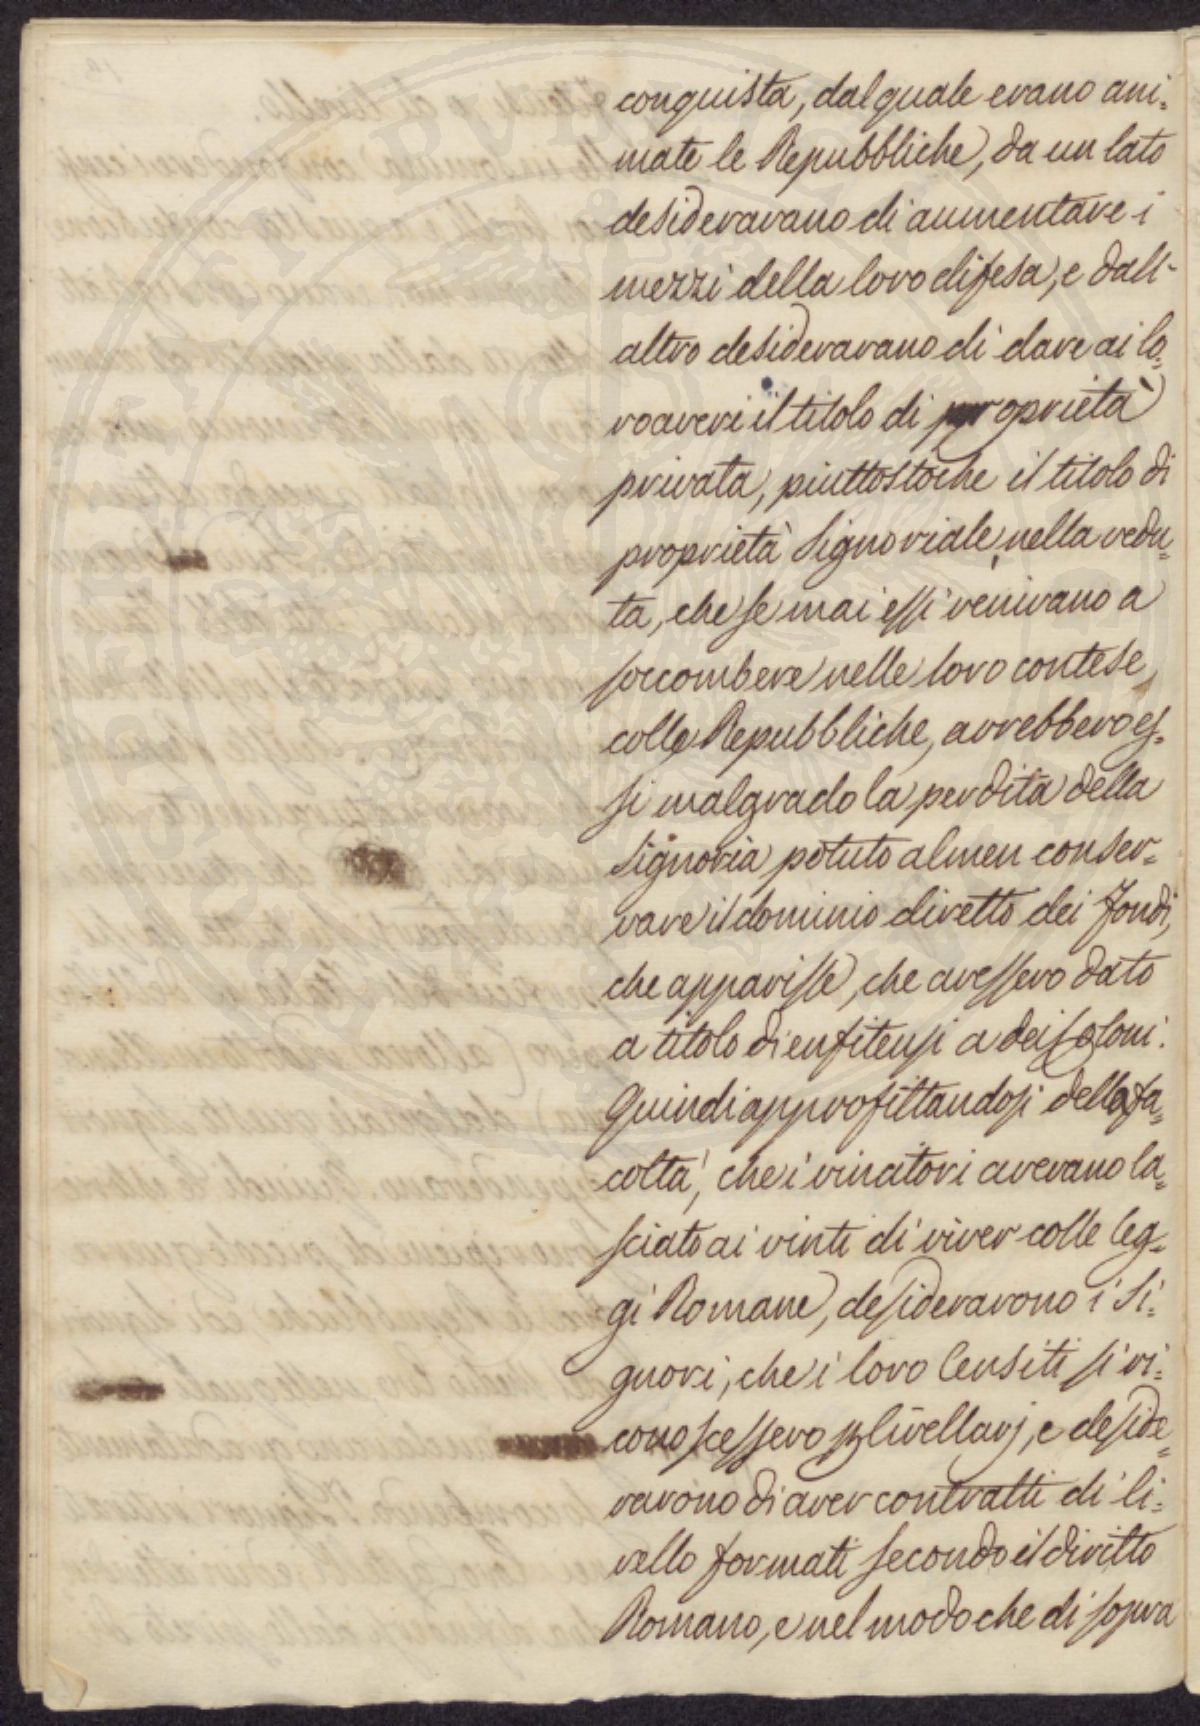 conquista, dal quale erano ani=
mate le Repubbliche, da un lato
desideravano di aumentare i
mezzi della loro difesa, e dall'
altro desideravano di dare ai lo=
ro averi il titolo di proprietà
privata, piuttostoche il titolo di
proprietà Signoriale, nella vedu=
ta, che se mai essi venivano a
soccombere nelle loro contese
colle Repubbliche, avrebbero es=
si malgrado la perdita della
Signoria potuto almen conser=
vare il dominio diretto dei fondi,
che apparisse, che avessero dato
a titolo di enfiteusi a dei Coloni.
Quindi approfittandosi della fa=
coltà, che i vincitori avevano la=
sciato ai vinti di viver colle leg=
gi Romane, desideravono i Si=
gnori, che i loro Censiti si ri=
conoscessero p livellarj, e deside=
ravono di aver contratti di li=
vello formati secondo il diritto
Romano, e nel modo che di sopra